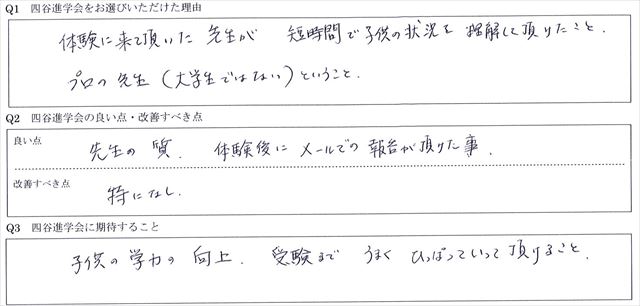 Q1 四谷進学会をお選びいただけた理由
体験に来て頂いた先生が 短時間で子供の状況を理解して頂けたこと.
プロの先生(大学生ではない)ということ.
Q2 四谷進学会の良い点・改善すべき点
良い点
先生の質. 体験後にメールでの報告が頂けた事.
改善すべき点
特になし.
Q3 四谷進学会に期待すること
子供の学力の向上. 受験まで うまく ひっぱっていって頂けること.